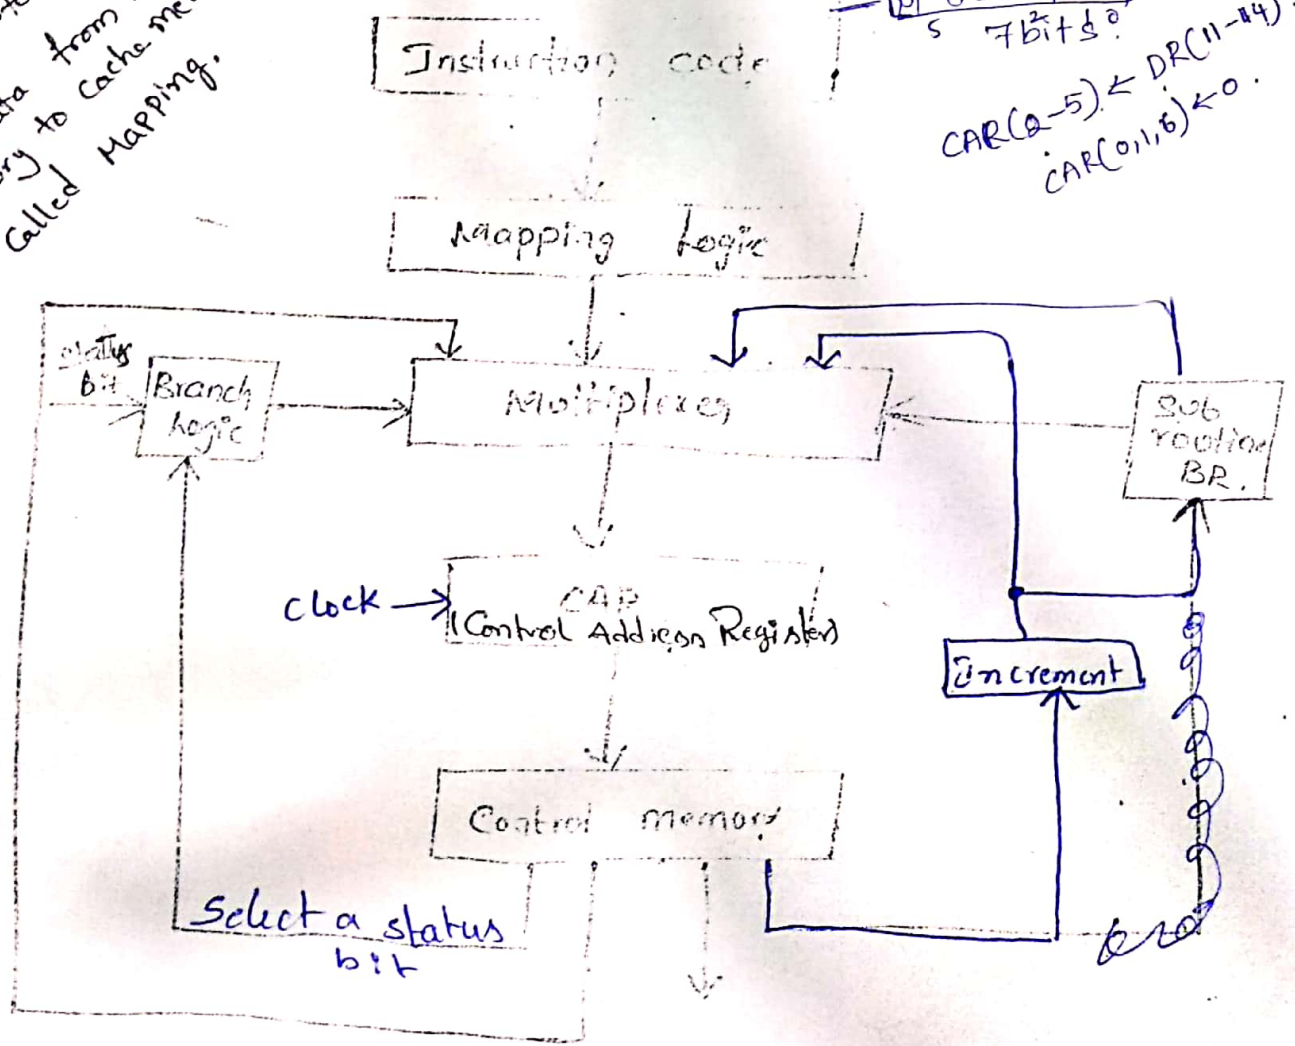 data from
to Cache
Called Mapping.
5 7 bits
CAR(2-5) ← DR(11-14)
CAR(0,1,6) ← 0.
Instruction code
Mapping Logic
status
bit
Branch
Logic
Multiplexer
Sub
routine
BR.
Clock
CAR
(Control Address Register)
Increment
Control memory
Select a status
bit